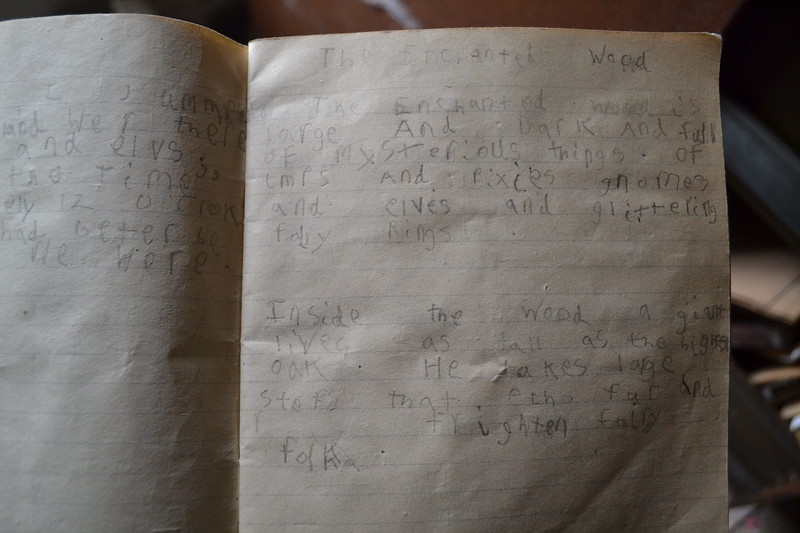 and
and elvs
the Time
12
had beter be
We were.
The Enchanted Wood
The Enchanted wood is
large And Dark And full
of mysterious things. of
imps And Pixies gnomes
and elves and glittering
Rings
Inside the wood a giant
lives as tall as the highest
oak He takes large
steps that echo far And
frighten
folk